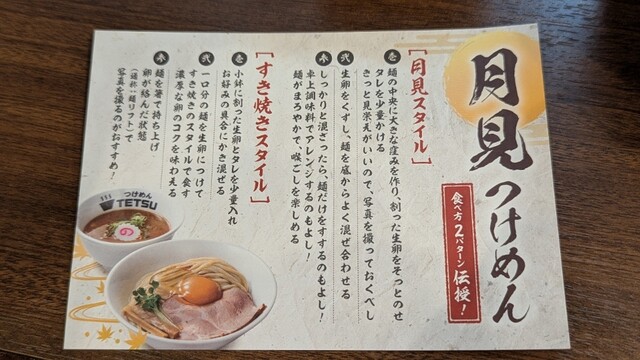 月見つけめん
食べ方2パターン伝授!
[月見スタイル]
壱 麺の中央に大きな窪みを作り、割った生卵をそっとのせ
タレを少量かける
きっと見栄えがいいので、写真を撮っておくべし
弐 生卵をくずし、麺を底からよく混ぜ合わせる
参 しっかりと混ざったら、麺だけをすするのもよし!
卓上調味料でアレンジするのもよし!
麺がまろやかで、喉ごしを楽しめる
[すき焼きスタイル]
壱 小鉢に割った生卵とタレを少量入れ
お好みの具合にかき混ぜる
弐 一口分の麺を生卵につけて
すき焼きのスタイルで食す
濃厚な卵のコクを味わえる
参 麺を箸で持ち上げ
卵が絡んだ状態
(通称:麺リフト)で
写真を撮るのがおすすめ!
つけめん
TETSU